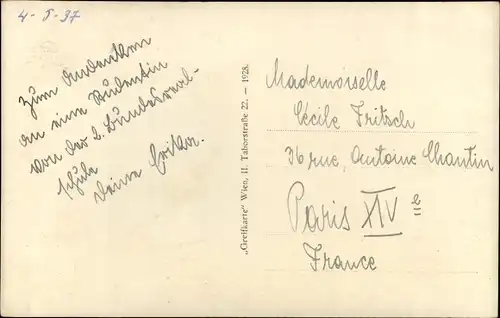 4-5-37
Zum Andenken
an eine Studentin
von der 2. Bundesreal-
schule
Deine Erika.
„Greifkarte" Wien, II. Taborstraße 22. — 1928.
Mademoiselle
Cécile Fritsch
36 rue, Antoine Chantin
Paris XIV e
France